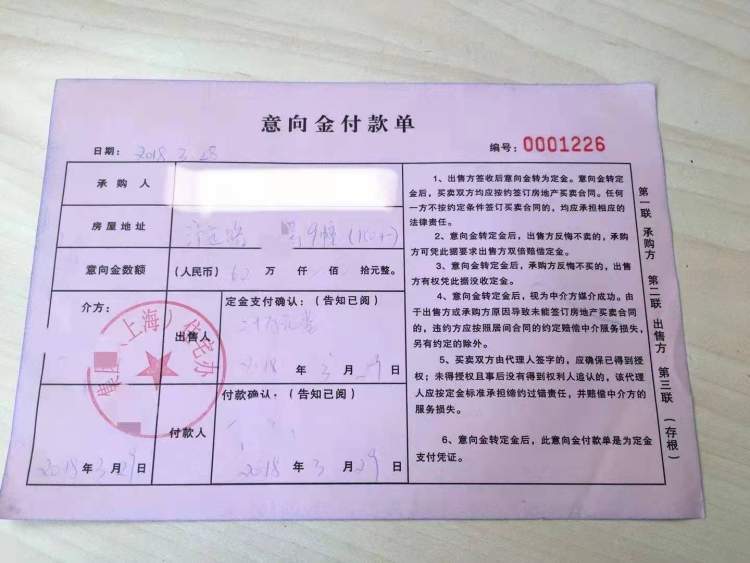 意向金付款单
日期： 2018 3 28
编号：0001226
承购人
房屋地址
意向金数额
（人民币） 万 仟 佰 拾元整。
介方：
2018年3月29日
出售人
定金支付确认：（告知已阅）
二十万元整
2018 年 3 月 29 日
付款人
付款确认：（告知已阅）
2018 年 3 月 29 日
（上海）
1、出售方签收后意向金转为定金。意向金转定
金后，买卖双方均应按约签订房地产买卖合同。任何
一方不按约定条件签订买卖合同的，均应承担相应的
法律责任。
2、意向金转定金后，出售方反悔不卖的，承购
方可凭此据要求出售方双倍赔偿定金。
3、意向金转定金后，承购方反悔不买的，出售
方有权凭此据没收定金。
4、意向金转定金后，视为中介方媒介成功。由
于出售方或承购方原因导致未能签订房地产买卖合同
的，违约方应按照居间合同的约定赔偿中介服务损失，
另有约定的除外。
5、买卖双方由代理人签字的，应确保已得到授
权；未得授权且事后没有得到权利人追认的，该代理
人应按定金标准承担缔约过错责任，并赔偿中介方的
服务损失。
6、意向金转定金后，此意向金付款单是为定金
支付凭证。
第一联 承购方 第二联 出售方 第三联（存根）